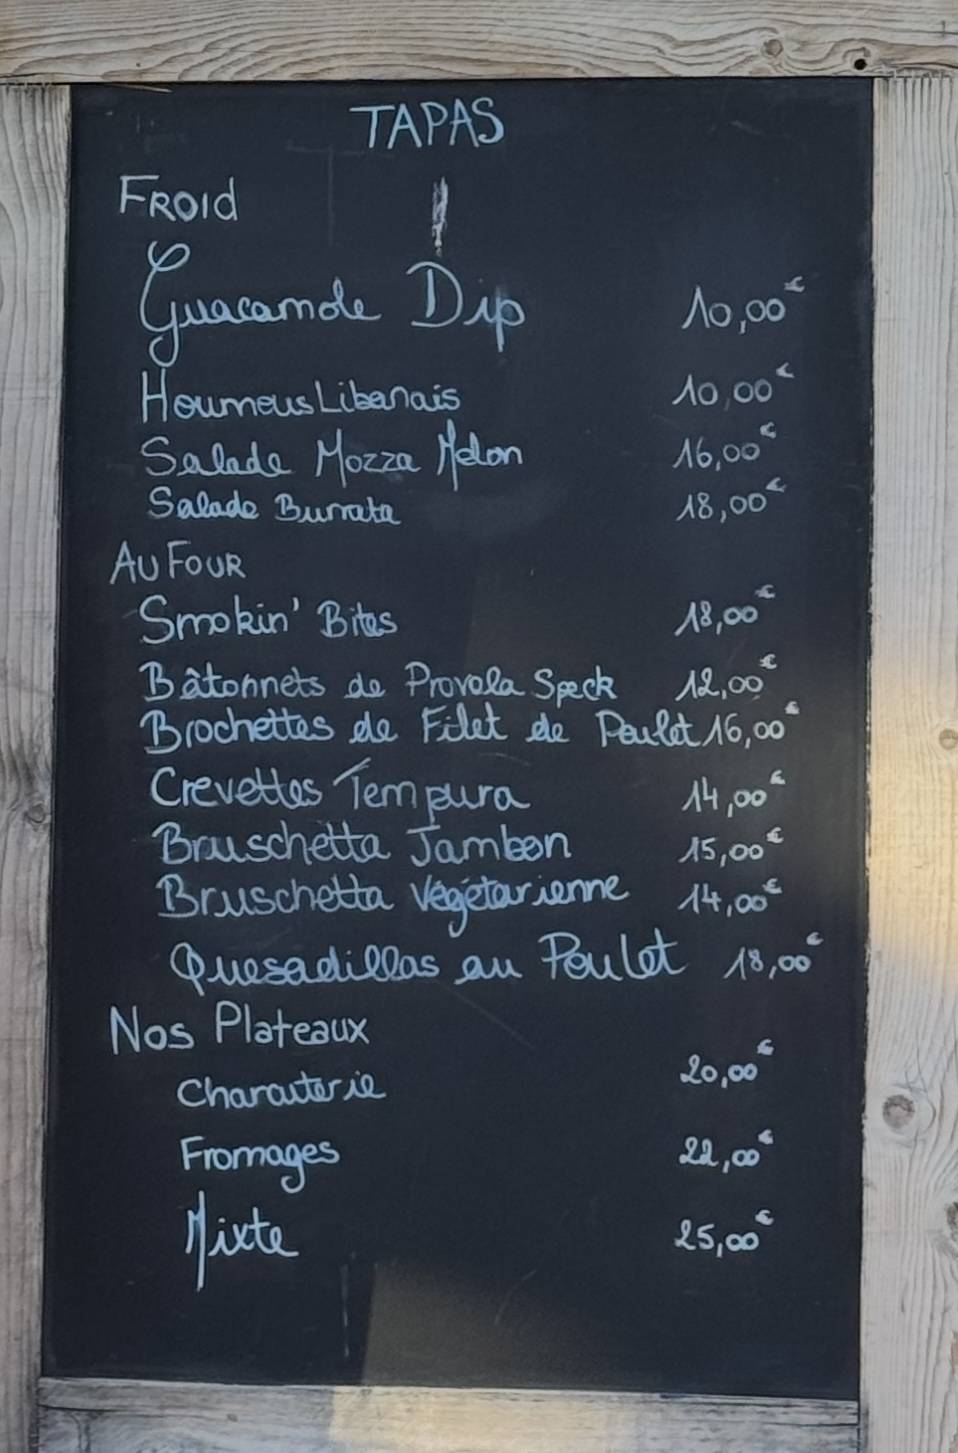 TAPAS
FROId
Guacamole Dip 10,00€
Houmous Libanais 10,00€
Salade Mozza Melon 16,00€
Salade Burrata 18,00€
AU FOUR
Smokin' Bites 18,00€
Bâtonnets de Provola Speck 12,00€
Brochettes de Filet de Poulet 16,00€
Crevettes Tempura 14,00€
Bruschetta Jambon 15,00€
Bruschetta Végétarienne 14,00€
Quesadillas au Poulet 18,00€
Nos Plateaux
Charcuterie 20,00€
Fromages 22,00€
Mixte 25,00€